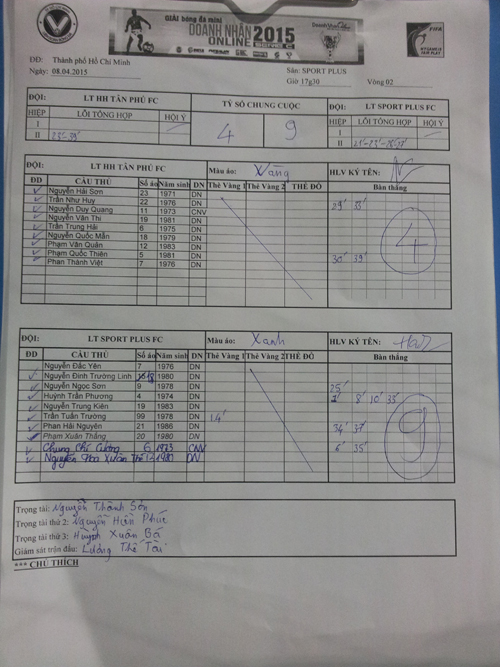 GIẢI bóng đá mini
DOANH NHÂN 2015
ONLINE
FIFA
MY GAME IS FAIR PLAY
ĐĐ: Thành phố Hồ Chí Minh Sân: SPORT PLUS
Ngày: 08.04.2015 Giờ 17g30 Vòng 02
ĐỘI: LT HH TÂN PHÚ FC TỶ SỐ CHUNG CUỘC ĐỘI: LT SPORT PLUS FC
HIỆP LỖI TỔNG HỢP HỘI Ý 4 9 HIỆP LỖI TỔNG HỢP HỘI Ý
I I
II II
ĐỘI: LT HH TÂN PHÚ FC Màu áo: Vàng HLV KÝ TÊN:
ĐD CẦU THỦ Số áo Năm sinh DN Thẻ Vàng 1 Thẻ Vàng 2 THẺ ĐỎ Bàn thắng
Nguyễn Hải Sơn 23 1971 DN
Trần Như Huy 22 1976 DN
Nguyễn Duy Quang 11 1973 CNV 29' 33'
Nguyễn Văn Thi 19 1981 DN
Trần Trung Hải 8 1975 DN 4
Nguyễn Quốc Mẫn 18 1979 DN
Phạm Văn Quân 12 1983 DN
Phạm Quốc Thiện 5 1981 DN 30' 39'
Phan Thành Việt 7 1976 DN
ĐỘI: LT SPORT PLUS FC Màu áo: Xanh HLV KÝ TÊN:
ĐD CẦU THỦ Số áo Năm sinh DN Thẻ Vàng 1 Thẻ Vàng 2 THẺ ĐỎ Bàn thắng
Nguyễn Đắc Yên 7 1976 DN
Nguyễn Đình Trường Linh 18 1980 DN
Nguyễn Ngọc Sơn 9 1978 DN 25'
Huỳnh Trần Phương 4 1974 DN 8' 10' 33'
Nguyễn Trung Kiên 19 1983 DN
Trần Tuấn Trường 99 1978 DN 14' 9
Phan Hải Nguyên 21 1986 DN 34' 37'
Phạm Xuân Thắng 20 1980 DN
Chung Chí Cường 6 1973 CNV 6' 35'
Nguyễn Hoa Xuân Thế 1980 DN
Trọng tài: Nguyễn Thành Sơn
Trọng tài thứ 2: Nguyễn Hiền Phúc
Trọng tài thứ 3: Huỳnh Xuân Bá
Giám sát trận đấu: Lương Thế Tài
*** CHÚ THÍCH